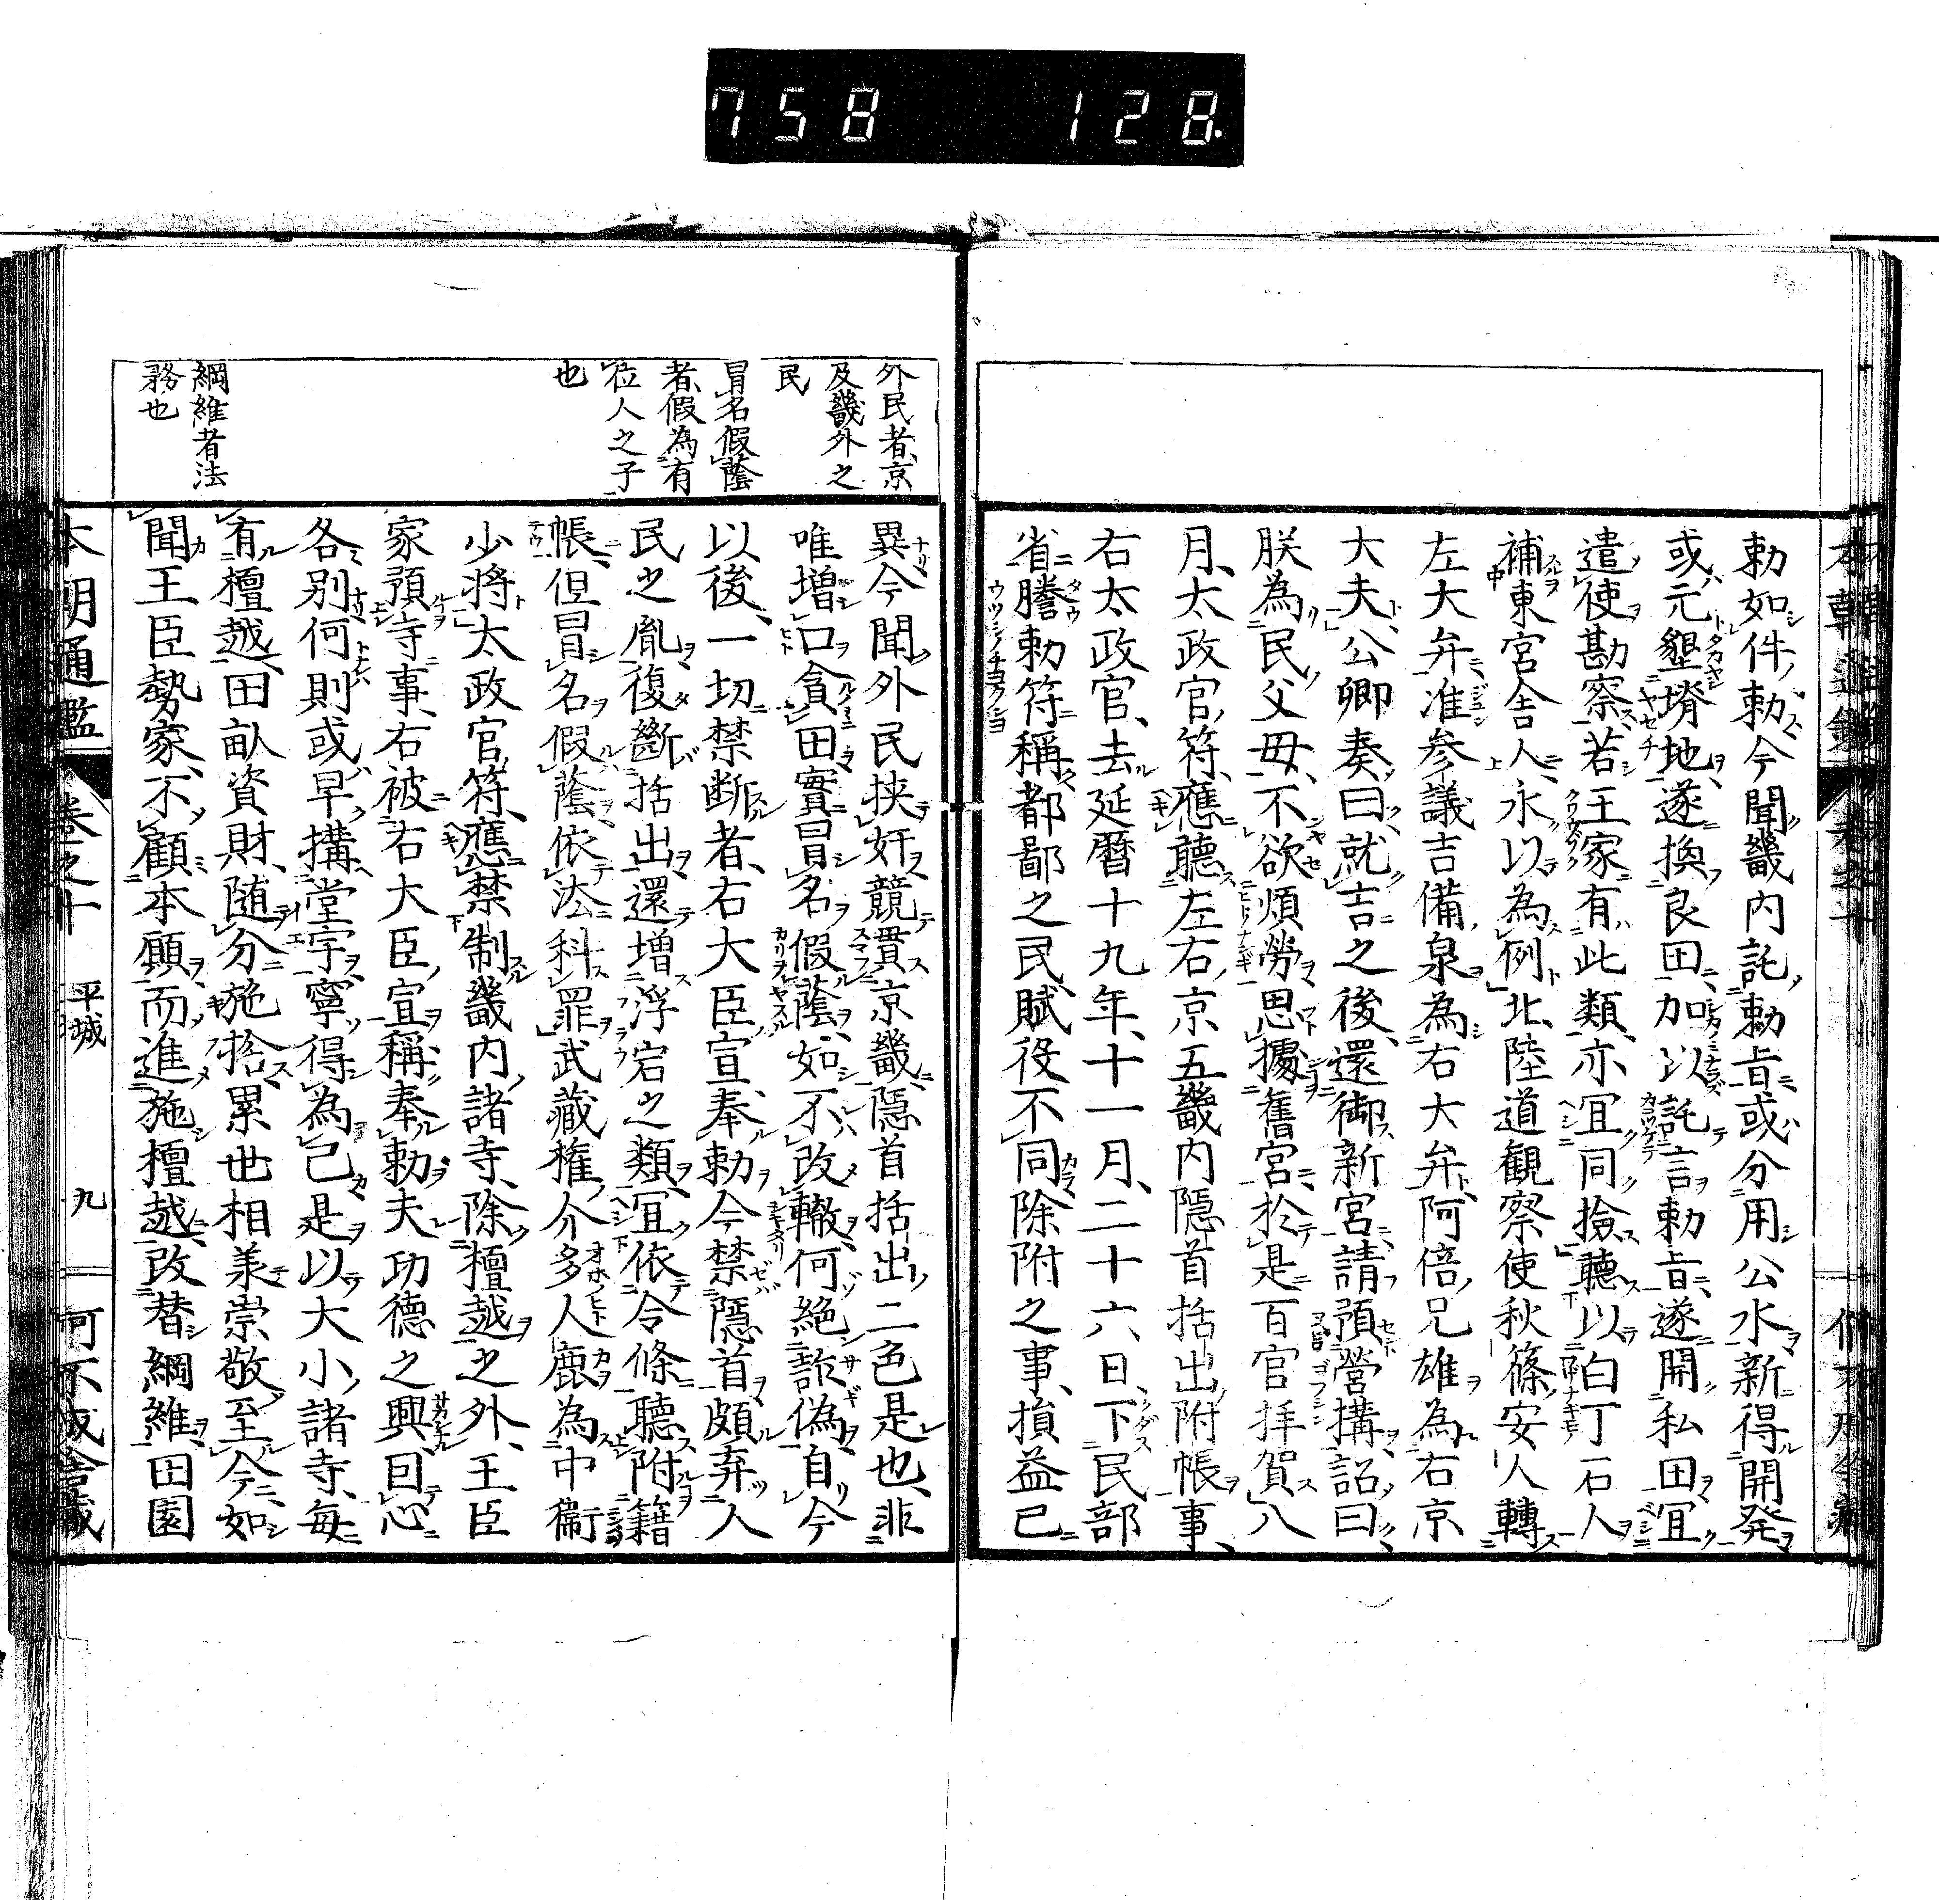 758 128.
勅如件、勅、今聞畿内託勅旨、或分用公水、新得開発、
或元墾塉地、遂換良田、加以託言勅旨、遂開私田、宜
遣使勘察、若王家有此類、亦宜同撿、聽以白丁一人
補東宮舎人、永以為例、北陸道観察使秋篠安人轉
左大弁、准参議吉備泉為右大弁、阿倍兄雄為右京
大夫、公卿奏曰、就吉之後、還御新宮、請預營搆、詔曰、
朕為民父母、不欲煩勞、思據舊宮、於是百官拝賀、八
月、太政官符、應聽左右京五畿内隠首括出附帳事、
右太政官、去延暦十九年、十一月、二十六日、下民部
省騰勅符稱、都鄙之民、賦役不同、除附之事、損益已
外民者、京
及畿外之
民
冒名假蔭
者、假為有
位人之子
也
綱維者法
務也
異、今聞外民挟奸、競貫京畿、隠首括出二色是也、非
唯増口貪田、實冒名假蔭、如不改轍、何絶詐偽、自今
以後、一切禁断者、右大臣宣、奉勅、今禁隠首、頗弃人
民之胤、復斷括出、還増浮宕之類、宜依令條聽附籍
帳、但冒名假蔭、依法科罪、武藏権介多人鹿為中衞
少将、太政官符、應禁制畿内諸寺、除檀越之外、王臣
家預寺事、右被右大臣宣稱、奉勅、夫功德之興、囙心
各別、何則或早搆堂宇、寧得為己、是以大小諸寺、毎
有檀越、田畝資財、随分施捨、累世相羕崇敬、至今如
聞、王臣勢家、不顧本願、而進施檀越、改替綱維、田園
本朝通鑑 卷之十 平城 九